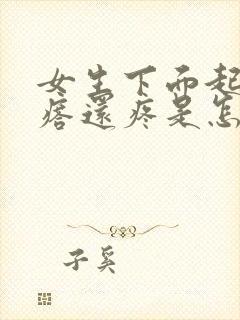 女生下面起
痞還疼是怎
子奚